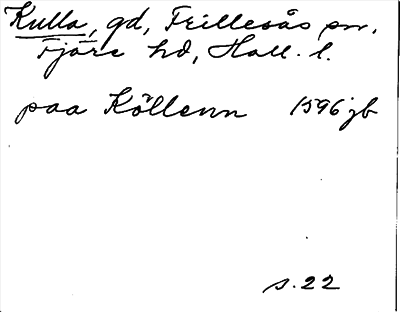 Kulla, gd, Frillesås sn,
Fjäre hd, Hall. l.
paa Köllenn 1596 jb
s. 22